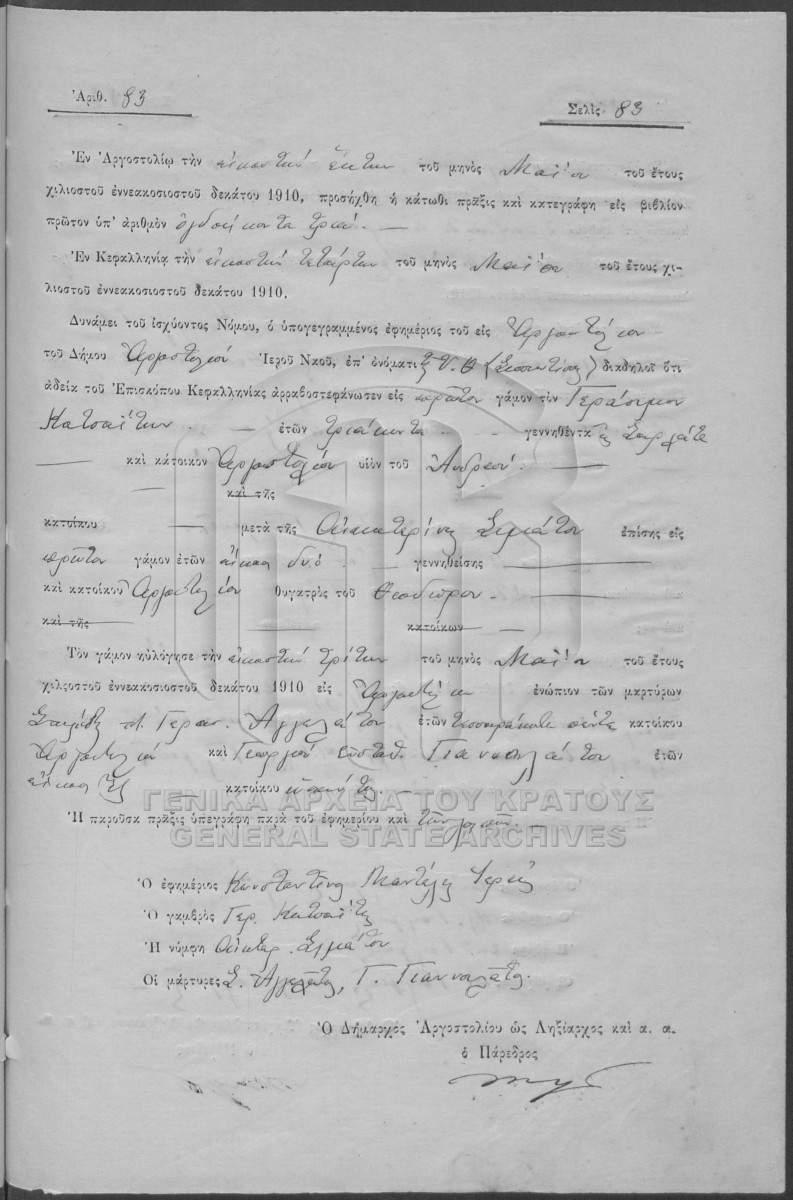 Ἀριθ. 83
Σελὶς 83
Ἐν Ἀργοστολίῳ τὴν εἰκοστήν ἕκτην τοῦ μηνὸς Μαΐου τοῦ ἔτους
χιλιοστοῦ ἐννεακοσιοστοῦ δεκάτου 1910, προσήχθη ἡ κάτωθι πρᾶξις καὶ κατεγράφη εἰς βιβλίον
πρῶτον ὑπ' ἀριθμὸν ὀγδοήκοντα τρία. —
Ἐν Κεφαλληνίᾳ τὴν εἰκοστήν τετάρτην τοῦ μηνὸς Μαΐου τοῦ ἔτους χι-
λιοστοῦ ἐννεακοσιοστοῦ δεκάτου 1910.
Δυνάμει τοῦ ἰσχύοντος Νόμου, ὁ ὑπογεγραμμένος ἐφημέριος τοῦ εἰς Ἀργοστόλιον
τοῦ Δήμου Ἀργοστολίου Ἱεροῦ Ναοῦ, ἐπ' ὀνόματι διαδηλοῖ ὅτι
ἀδείᾳ τοῦ Ἐπισκόπου Κεφαλληνίας ἀρραβοστεφάνωσεν εἰς πρῶτον γάμον τὸν Γεράσιμον
Κατσαΐτην. — ἐτῶν τριάκοντα — γεννηθέντα
— καὶ κάτοικον Ἀργοστολίου υἱὸν τοῦ Ἀνδρέου. —
— καὶ τῆς
κατοίκου — μετὰ τῆς Αἰκατερίνης Σιμάτου ἐπίσης εἰς
πρῶτον γάμον ἐτῶν εἴκοσι δύο. — γεννηθείσης —
καὶ κατοίκου Ἀργοστολίου θυγατρὸς τοῦ Θεοδώρου. —
καὶ τῆς — κατοίκων —
Τὸν γάμον ηὐλόγησε τὴν εἰκοστήν τρίτην τοῦ μηνὸς Μαΐου τοῦ ἔτους
χιλιοστοῦ ἐννεακοσιοστοῦ δεκάτου 1910 εἰς Ἀργοστόλιον ἐνώπιον τῶν μαρτύρων
Γερασ. Ἀγγελάτου ἐτῶν τεσσαράκοντα πέντε κατοίκου
Ἀργοστολίου καὶ Γεωργίου Εὐσταθ. Γιαννουλάτου ἐτῶν
εἴκοσι ἕξ — κατοίκου —
ΓΕΝΙΚΑ ΑΡΧΕΙΑ ΤΟΥ ΚΡΑΤΟΥΣ
GENERAL STATE ARCHIVES
Ἡ παροῦσα πρᾶξις ὑπεγράφη παρὰ τοῦ ἐφημερίου καὶ τῶν λοιπῶν. —
Ὁ ἐφημέριος Κωνσταντῖνος Παντελῆς Ἱερεὺς
Ὁ γαμβρὸς Γερ. Κατσαΐτης
Ἡ νύμφη Αἰκατερ. Σιμάτου
Οἱ μάρτυρες Σ. Ἀγγελάτος, Γ. Γιαννουλάτος.
Ὁ Δήμαρχος Ἀργοστολίου ὡς Ληξίαρχος καὶ α. α.
ὁ Πάρεδρος